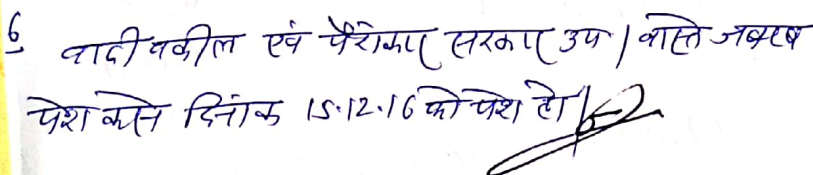 6 वादी वकील एवं पैरोकार सरकार उप । वास्ते जबाब
पेश करने दिनांक 15.12.16 को पेश हो।